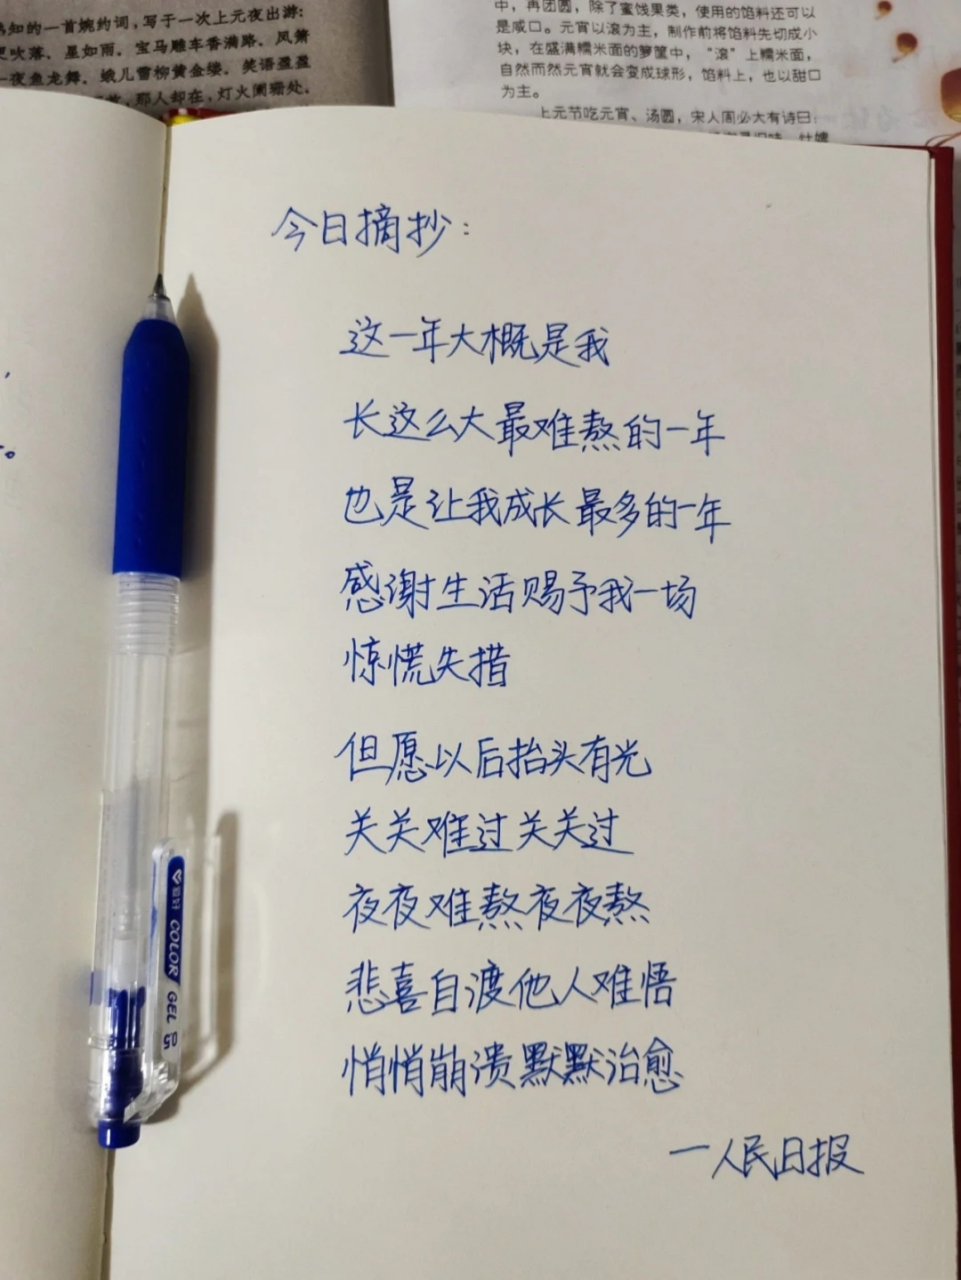 的一首婉约词，写于一次上元夜出游：
吹落、星如雨。宝马雕车香满路。凤箫
一夜鱼龙舞。蛾儿雪柳黄金缕。笑语盈盈
那人却在，灯火阑珊处。
中，再团圆，除了蜜饯果类，使用的馅料还可以
是咸口。元宵以滚为主，制作前将馅料先切成小
块，在盛满糯米面的箩筐中，“滚”上糯米面，
自然而然元宵就会变成球形，馅料上，也以甜口
为主。
上元节吃元宵、汤圆，宋人周必大有诗曰：
今日摘抄：
这一年大概是我
长这么大最难熬的一年
也是让我成长最多的一年
感谢生活赐予我一场
惊慌失措
但愿以后抬头有光
关关难过关关过
夜夜难熬夜夜熬
悲喜自渡他人难悟
悄悄崩溃默默治愈
一人民日报
COLOR GEL 0.5